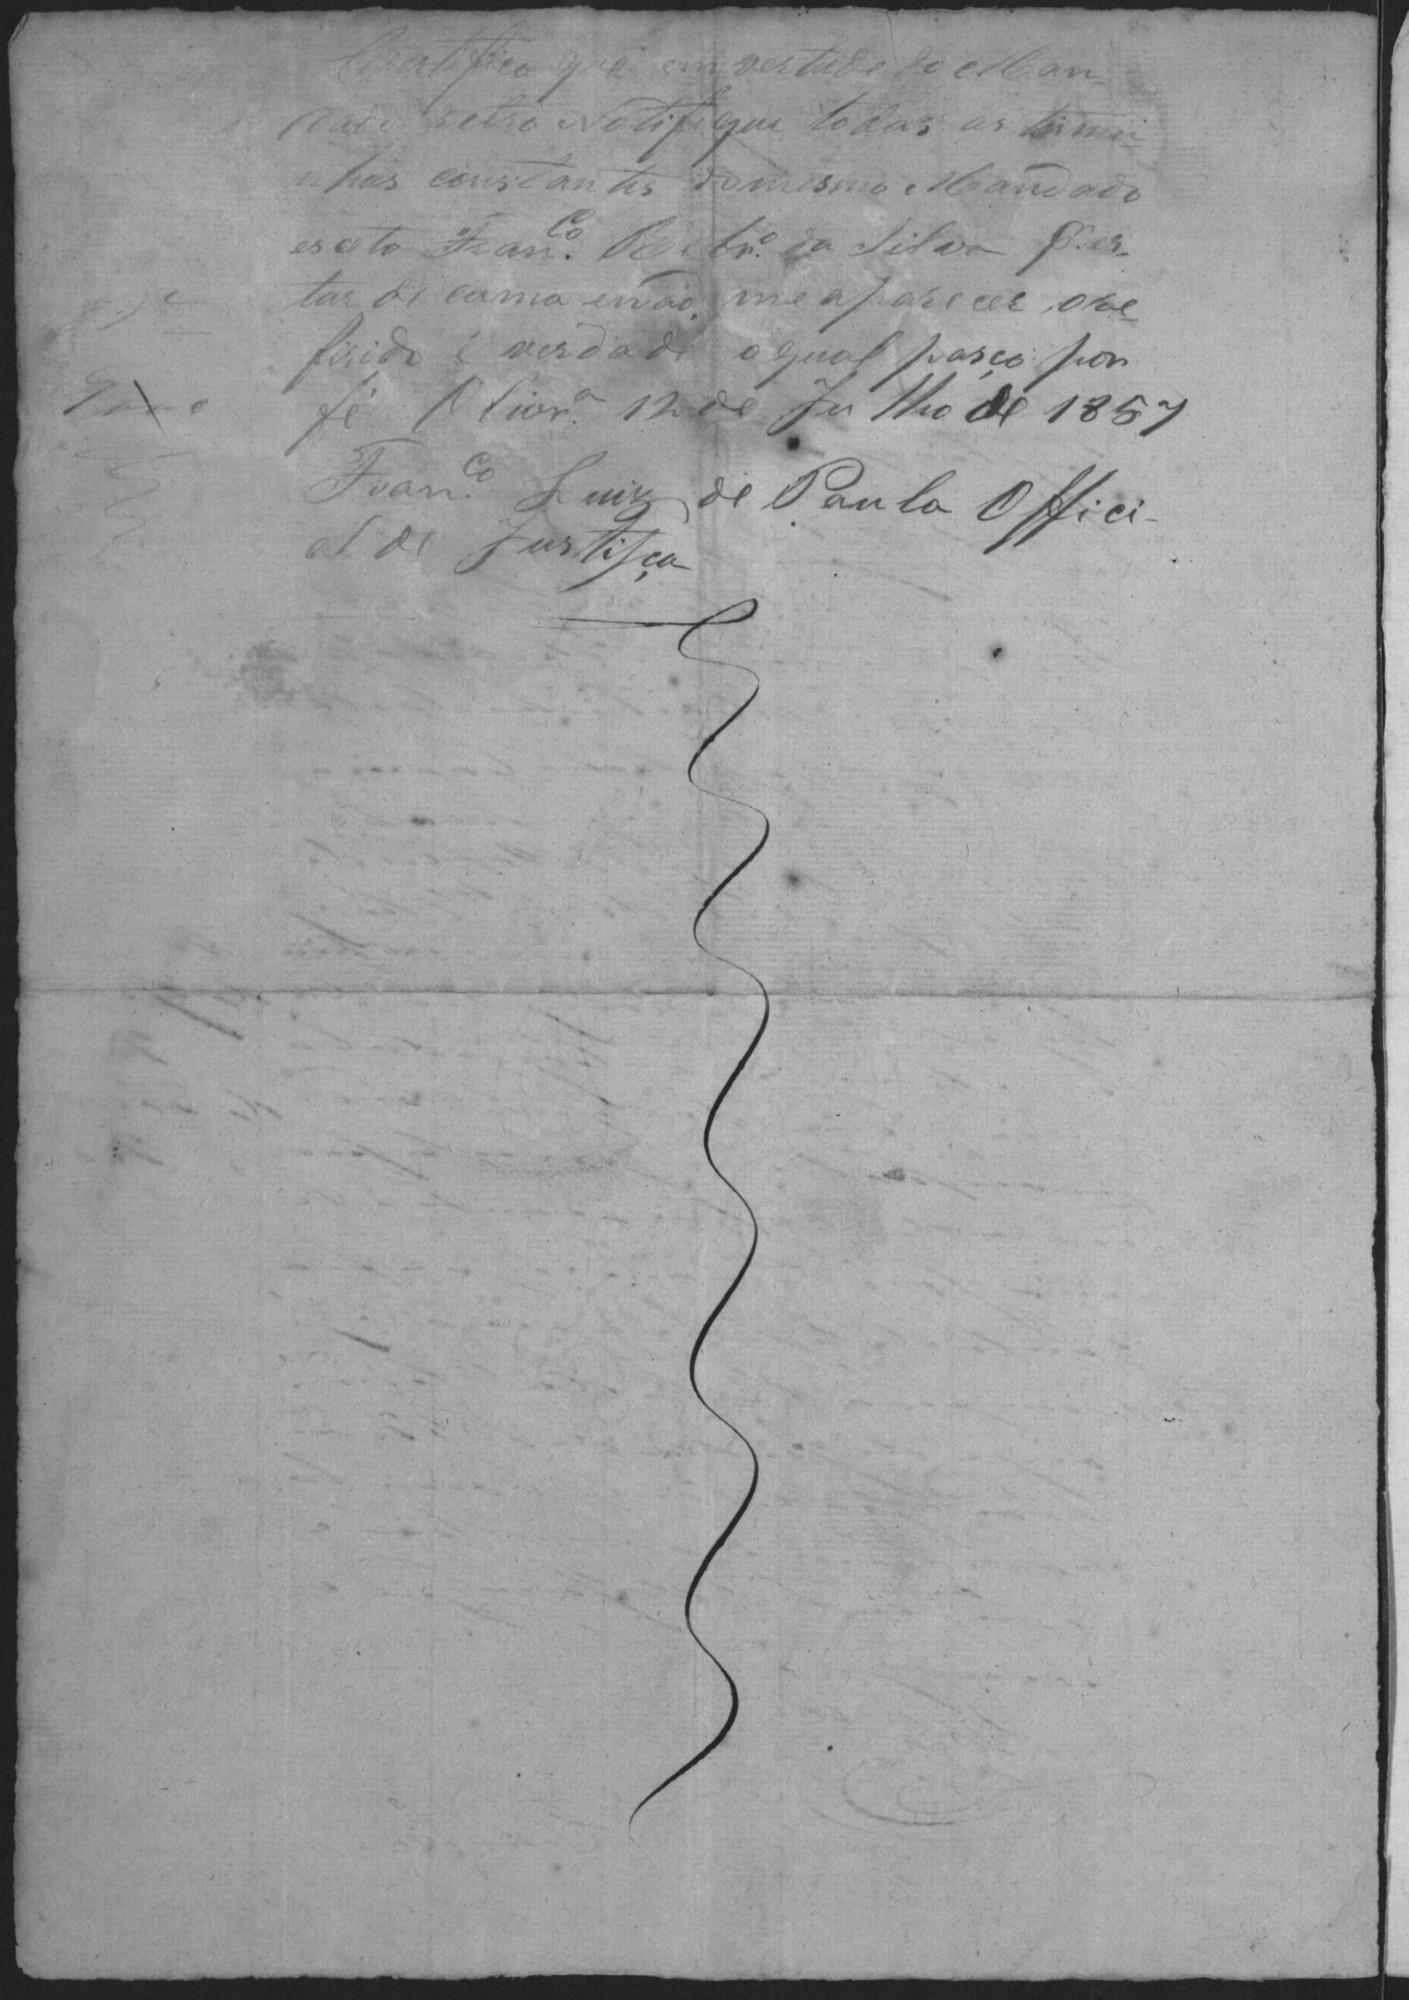 Certifico que em vertude do Man-
dado retro Notifique todas as temu-
nhas constantes do mesmo Mandado
eseto Fran.co Pedr.o da Silva P. es-
tar de cama enão me aparecer, ore-
firido é verdade oqual paço por
fé Olivr.a 12 de Julho de 1857
Fran.co Luiz de Paula Offici-
al de Justiça